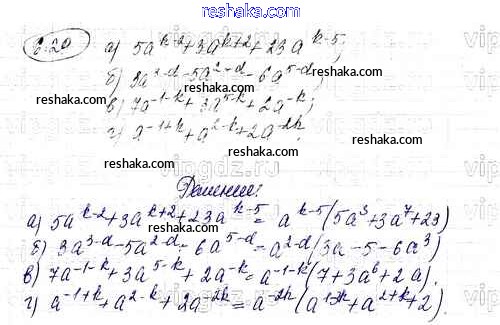 reshaka.com
6.20 а) 5a^{k-2}+3a^{k+2}+23a^{k-5};
reshaka.com
б) 3a^{3-d}-5a^{2-d}-6a^{5-d};
reshaka.com
в) 7a^{-1-k}+3a^{5-k}+2a^{-k};
reshaka.com
г) a^{-1+k}+a^{2-k}+2a^{-2k}.
reshaka.com
Решение:
reshaka.com
а) 5a^{k-2}+3a^{k+2}+23a^{k-5}=a^{k-5}(5a^3+3a^7+23)
б) 3a^{3-d}-5a^{2-d}-6a^{5-d}=a^{2-d}(3a-5-6a^3)
в) 7a^{-1-k}+3a^{5-k}+2a^{-k}=a^{-1-k}(7+3a^6+2a).
г) a^{-1+k}+a^{2-k}+2a^{-2k}=a^{-2k}(a^{-1+3k}+a^{2+k}+2).
reshaka.com